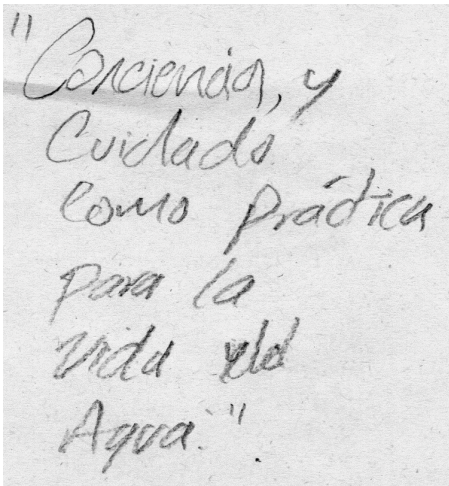 "Conciencia, y
Cuidado
como práctica
para la
vida del
Agua."